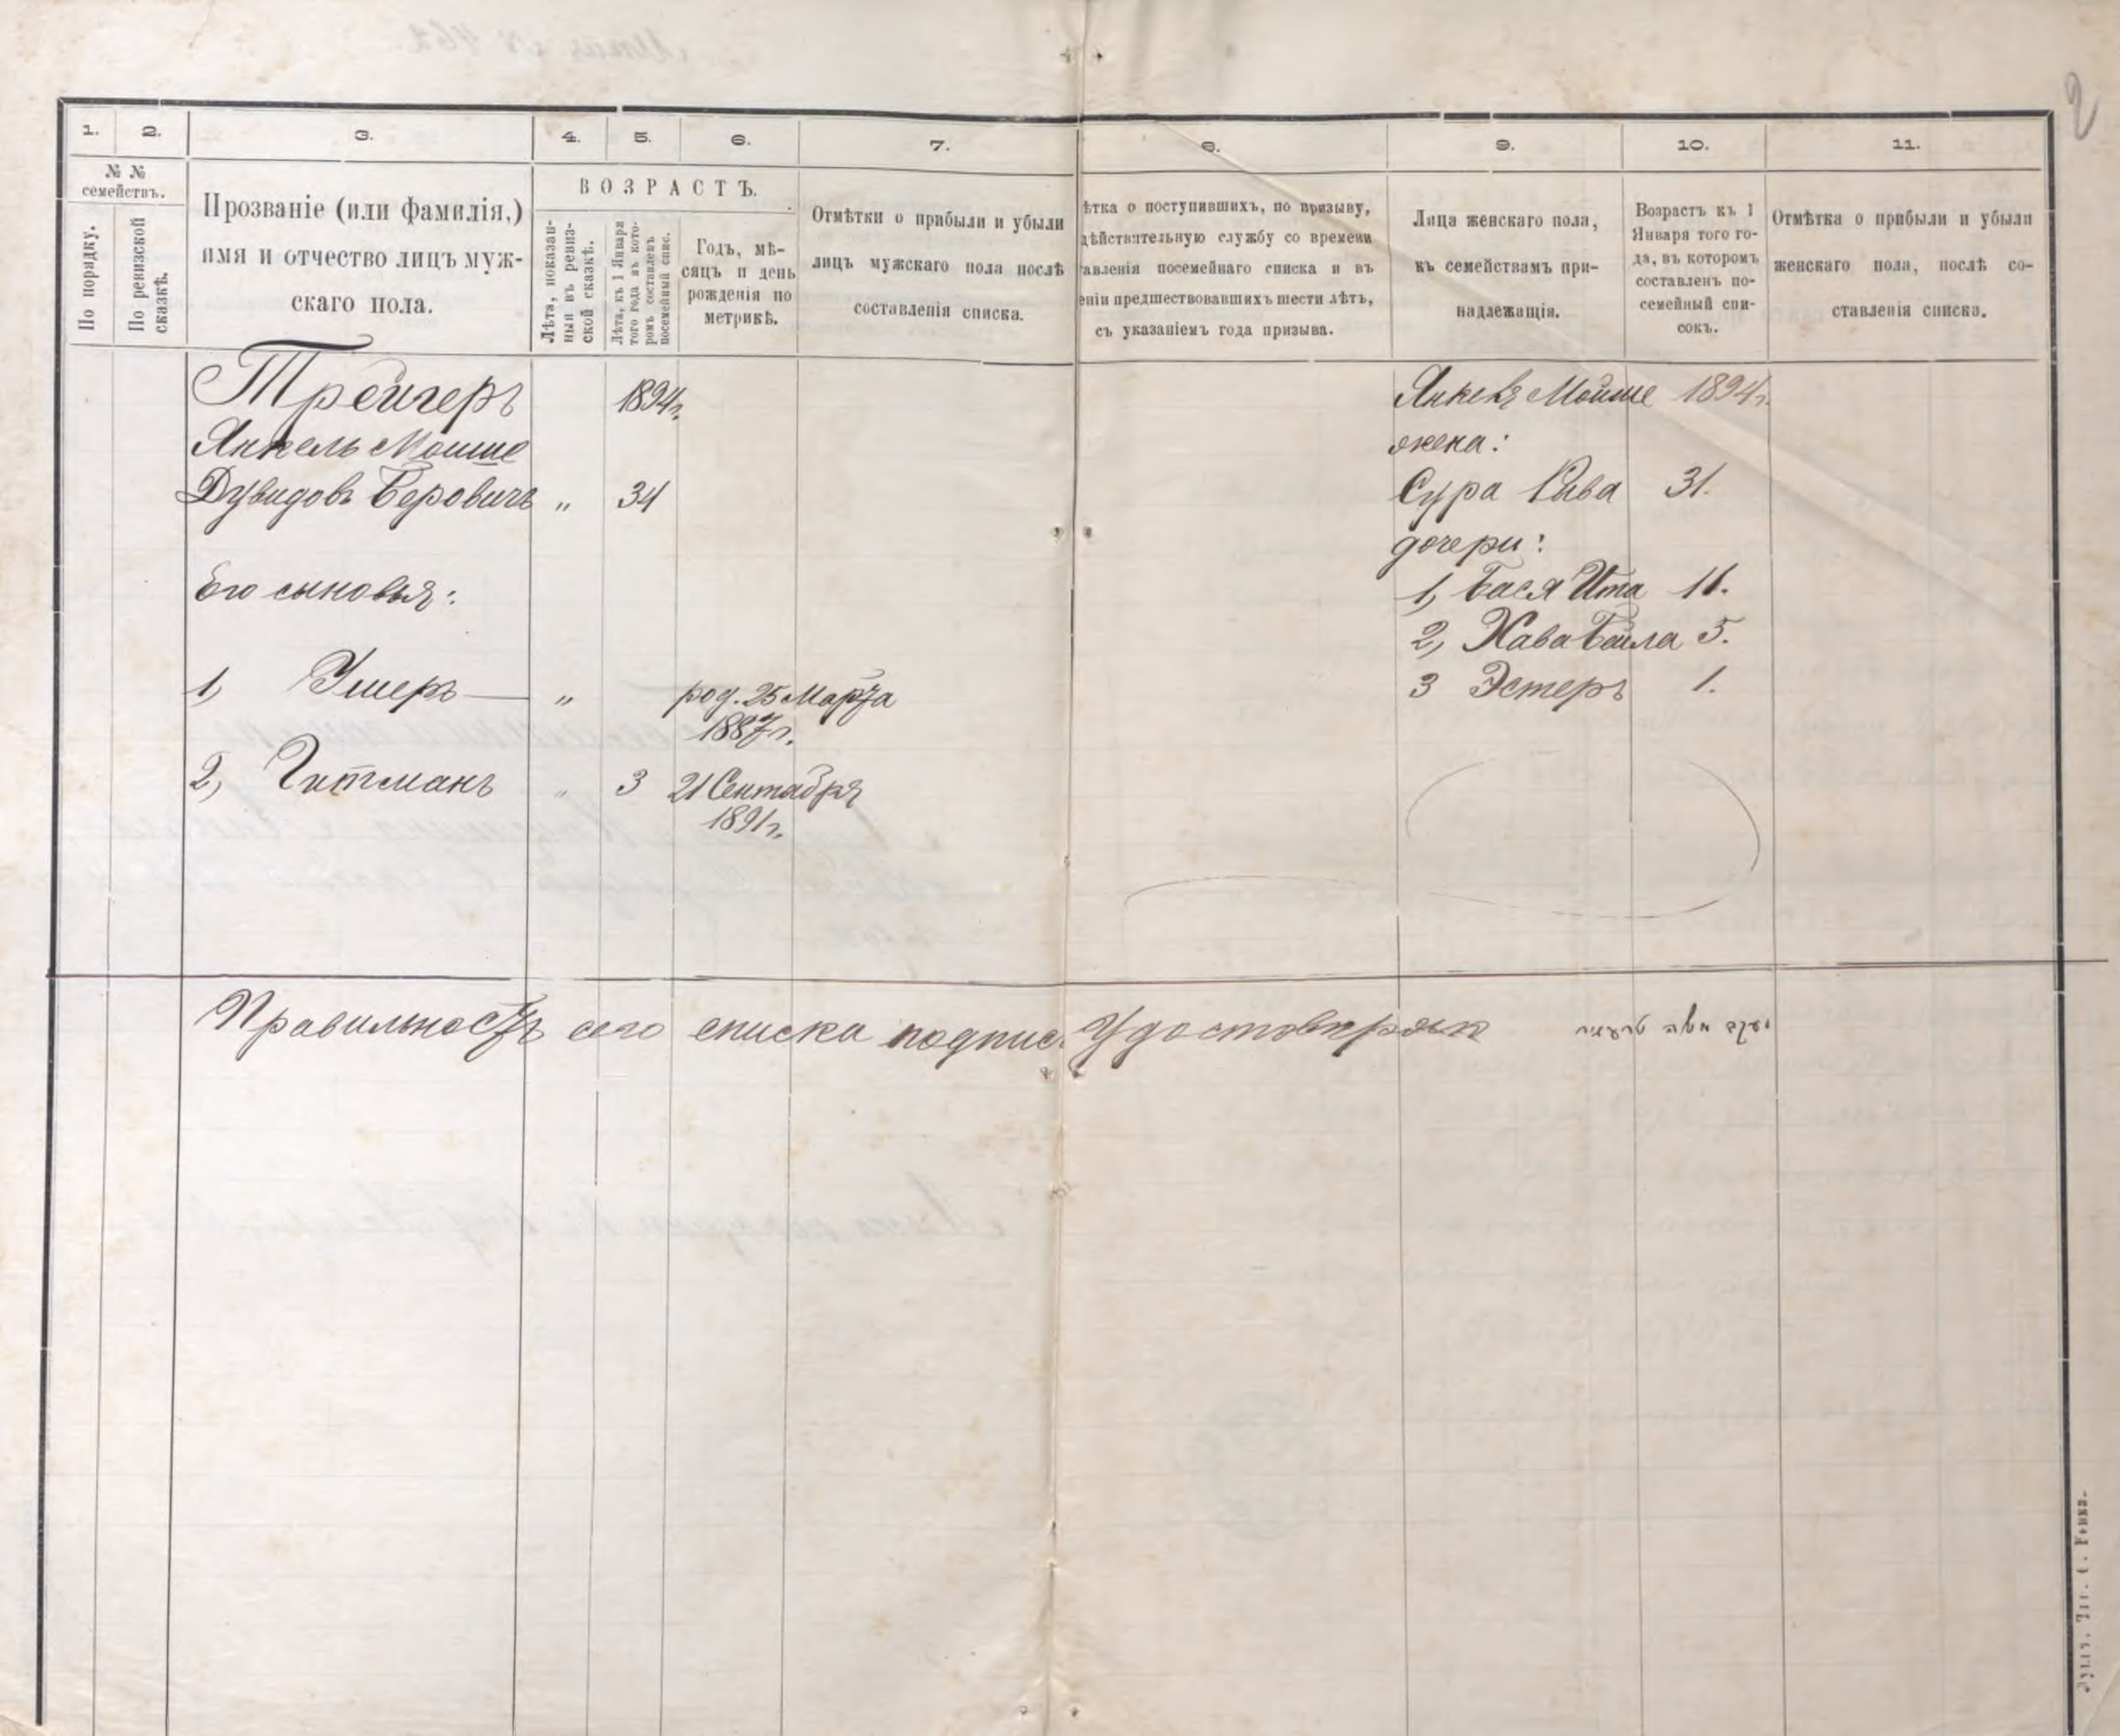 2
1. 2. 3. 4. 5. 6. 7. 8. 9. 10. 11.
№ №
семействъ.
По порядку.
По ревизской
сказкѣ.
Прозваніе (или фамилія,)
имя и отчество лицъ муж-
скаго пола.
ВОЗРАСТЪ.
Лѣта, показан-
ныя въ ревиз-
ской сказкѣ.
Лѣта, къ 1 Января
того года въ кото-
ромъ составленъ
посемейный спис.
Годъ, мѣ-
сяцъ и день
рожденія по
метрикѣ.
Отмѣтки о прибыли и убыли
лицъ мужскаго пола послѣ
составленія списка.
ѣтка о поступившихъ, по призыву,
дѣйствительную службу со времени
авленія посемейнаго списка и въ
еніи предшествовавшихъ шести лѣтъ,
съ указаніемъ года призыва.
Лица женскаго пола,
къ семействамъ при-
надлежащія.
Возрастъ къ 1
Января того го-
да, въ которомъ
составленъ по-
семейный спи-
сокъ.
Отмѣтка о прибыли и убыли
женскаго пола, послѣ со-
ставленія списка.
Трейгеръ 1894г.
Янкель Мойше
Дувидовъ Беровичъ " 34
Его сыновья:
1, Ушеръ — " род. 25 Марта
1887г.
2, Гитманъ " 3 21 Сентября
1891г.
Янкеля Мойше 1894г.
жена:
Сура Рива 31.
дочери:
1, Бася Ита 11.
2, Хава Бейла 5.
3 Эстеръ 1.
Правильность сего списка подпис Удостоверяю יעקב משה טרעגיר